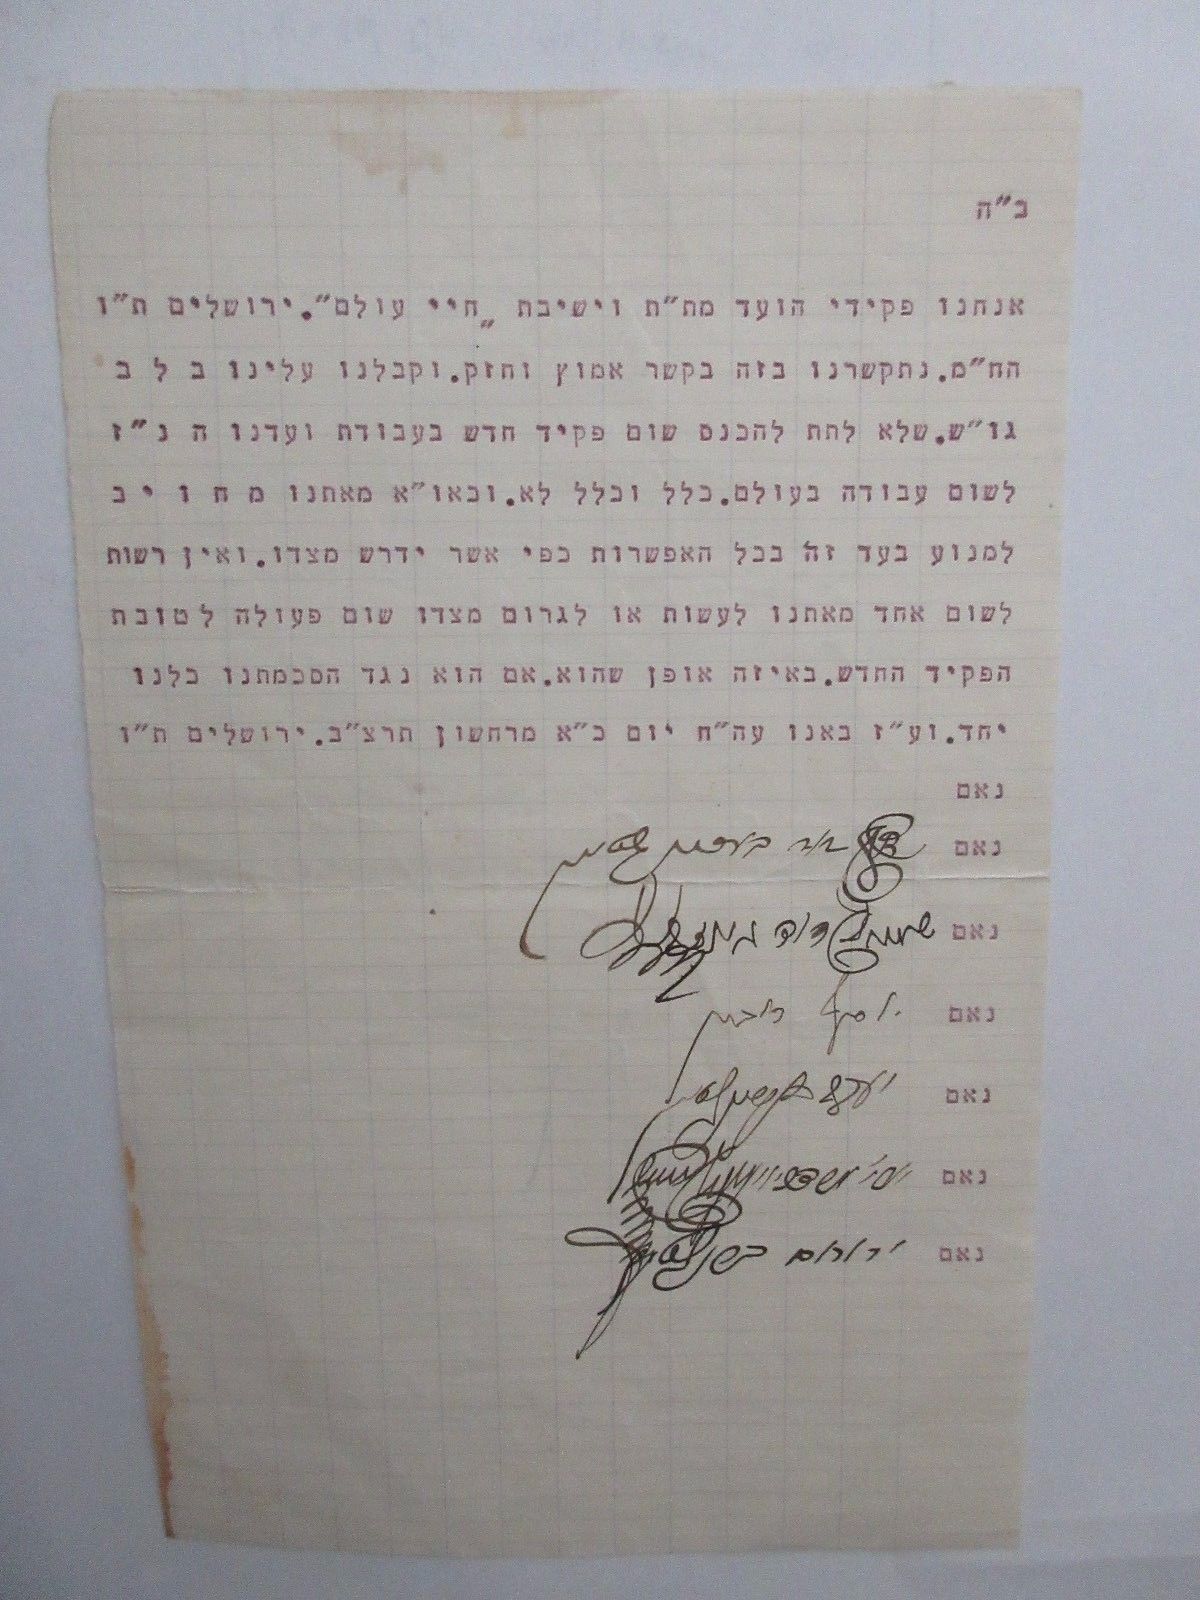 ב״ה
אנחנו פקידי הועד מת״ת וישיבת „חיי עולם״. ירושלים ת״ו
הח״מ. נתקשרנו בזה בקשר אמוץ וחזק. וקבלנו עלינו ב ל ב
גו״ש. שלא לתת להכנס שום פקיד חדש בעבודת ועדנו ה נ״ז
לשום עבודה בעולם. כלל וכלל לא. וכאו״א מאתנו מ ח ו י ב
למנוע בעד זה בכל האפשרות כפי אשר ידרש מצדו. ואין רשות
לשום אחד מאתנו לעשות או לגרום מצדו שום פעולה לטובת
הפקיד החדש. באיזה אופן שהוא. אם הוא נגד הסכמתנו כלנו
יחד. וע״ז באנו עה״ח יום כ״א מרחשון תרצ״ב. ירושלים ת״ו
נאם
נאם
נאם דוד
נאם יוסף
נאם יעקב
נאם
נאם ירוחם